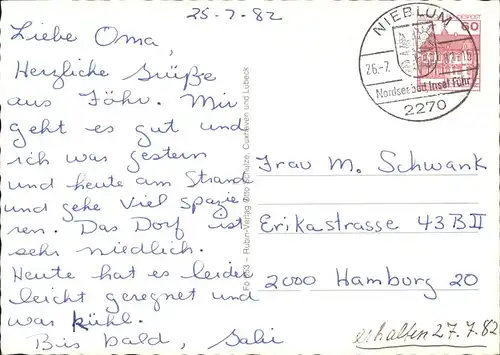 25-7-82
Liebe Oma,
Herzliche Grüße
aus Föhr. Mir
geht es gut und
ich war gestern
und heute am Strand
und gehe viel spazie-
ren. Das Dorf ist
sehr niedlich.
Heute hat es leider
leicht geregnet und
war kühl.
Bis bald, Gabi
Fo 653 - Rubin-Verlag Otto Schulze, Cuxhaven und Lübeck
NIEBLUM
26.-7.
Nordseebad Insel Föhr
2270
60
Frau M. Schwank
Erikastrasse 43 B II
2000 Hamburg 20
erhalten 27.7.82